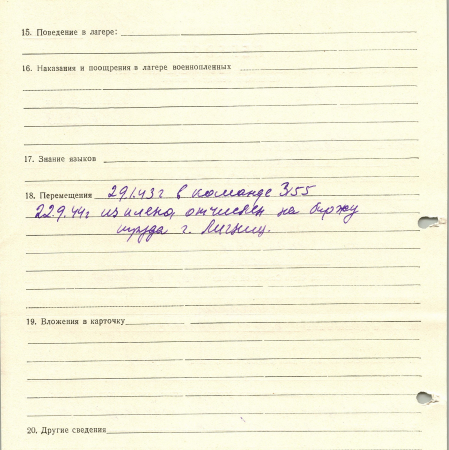 15. Поведение в лагере:
16. Наказания и поощрения в лагере военнопленных
17. Знание языков
18. Перемещения 29.1.43 г в команде 355
22.9.44г из плена отчислен на биржу
труда г. Лигниц.
19. Вложения в карточку
20. Другие сведения